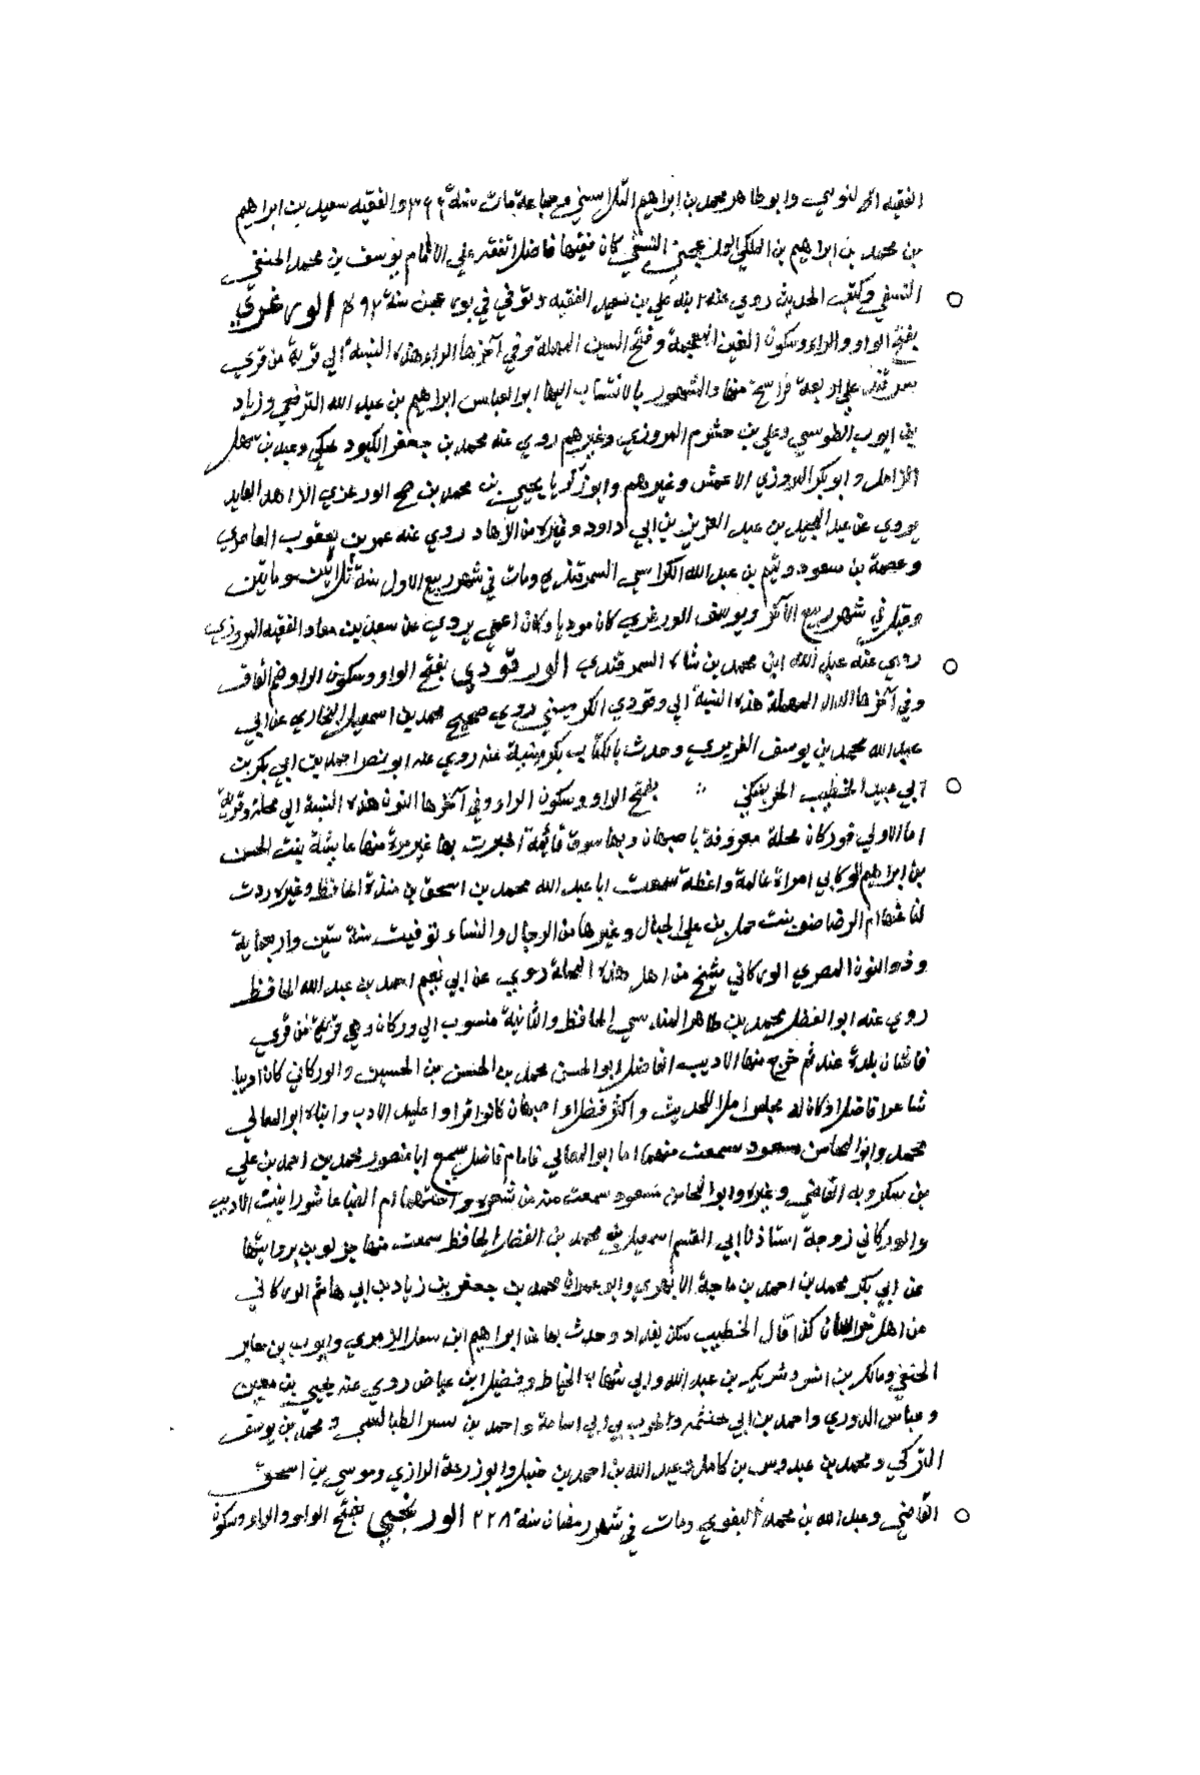 الفقيه النوسي وابو طاهر محمد بن ابراهيم وجماعة مات سنة والفقيه سعيد بن ابراهيم
بن محمد بن ابراهيم بن المكي النسفي كان فقيها فاضلا تفقه علي الامام يوسف بن محمد الحنفي
النسفي وكتب الحديث روي عنه ابنه علي بن سعيد الفقيه وتوفي في سنة الورغسري
بفتح الواو والراء وسكون الغين المعجمة وفتح السين المهملة وفي آخرها الراء هذه النسبة الي قرية من قري
سمرقند علي اربعة فراسخ منها والمشهور بالانتساب اليها ابو العباس ابراهيم بن عبد الله وزياد
بن ايوب الطوسي وعلي بن خشرم المروزي وغيرهم روي عنه محمد بن جعفر الكبود وعبد بن سهل
الزاهد وابو بكر المروزي الاعمش وغيرهم وابو زكريا يحيي بن محمد بن الورغزي الزاهد العابد
يروي عن عبد المجيد بن عبد العزيز بن ابي داود وغيره من الزهاد روي عنه عمر بن يعقوب العامري
وعصمة بن مسعود وتيم بن عبد الله الكرابيسي السمرقندي ومات في شهر ربيع الاول سنة ثلاثين ومايتين
وقيل في شهر ربيع الآخر ويوسف الورغزي كان مودبا وكان اعمي يروي عن سعيد بن معاد الفقيه المروزي
روي عنه عبد الله ابن محمد بن شاه السمرقندي الورقودي بفتح الواو وسكون الراو ضم القاف
وفي آخرها الدال المهملة هذه النسبة الي وقودي روي صحيح محمد بن اسمعيل البخاري عن ابي
عبد الله محمد بن يوسف الفربري وحدث بالكتاب بكرمينية عنه روي عنه ابو نصر احمد بن ابي بكر بن
ابي عبيد الخطيب بفتح الواو وسكون الراء وفي آخرها النون هذه النسبة الي محلة وقرية
اما الاولي فوركان محلة معروفة باصبهان وبها سوق قائمة اخبرت بها غير مرة منها عايشة بنت الحسن
بن ابراهيم الوركاني امراة عالمة واعظة سمعت ابا عبد الله محمد بن اسحق بن مندة الحافظ وغيره روت
لنا عنها ام الرضا ضو بنت حمد بن علي الحبال وغيرها من الرجال والنساء توفيت سنة ستين واربعماية
وذو النون المصري الوركاني شيخ من اهل هذه المحلة روي عن ابي نعيم احمد بن عبد الله الحافظ
روي عنه ابو الفضل محمد بن طاهر المقدسي الحافظ والثانية منسوب الي وركان وهي قرية من قري
قاشان بلدة عند قم خرج منها الاديب الفاضل ابو الحسن محمد بن الحسن بن الحسين والوركاني كان اديبا
شاعرا فاضلا وكان له مجلس املا للحديث واكثر فضلاء اصبهان كانوا قراوا عليه الادب وابناه ابو المعالي
محمد وابو المحاسن مسعود سمعت منهما اما ابو المعالي فامام فاضل سمع ابا منصور محمد بن احمد بن علي
بن شكرويه القاضي وغيره وابو المحاسن مسعود سمعت منه من شعره واختهما ام الضيا عاشورا بنت الاديب
والوركاني زوجة استاذنا ابي القسم اسمعيل بن محمد بن الفضل الحافظ سمعت منها جز لوين بروايتها
عن ابي بكر محمد بن احمد بن ماجة الابهري وابو عمران محمد بن جعفر بن زياد بن ابي هاشم الوركاني
من اهل خراسان كذا قال الخطيب سكن بغداد وحدث بها عن ابراهيم ابن سعد الزهري وايوب بن جابر
الحنفي ومالك بن انس وشريك بن عبد الله وابي شهاب الخياط وفضيل ابن عياض روي عنه يحيي بن معين
وعباس الدوري واحمد بن ابي خثيمة والحرث بن ابي اسامة واحمد بن الطيالسي ومحمد بن يوسف
التركي ومحمد بن عبدوس بن كامل وعبد الله بن احمد بن حنبل وابو زرعة الرازي وموسي بن اسحق
القاضي وعبد الله بن محمد البغوي ومات في شهر رمضان سنة ٢٢٨ بفتح الواو والراء وسكون